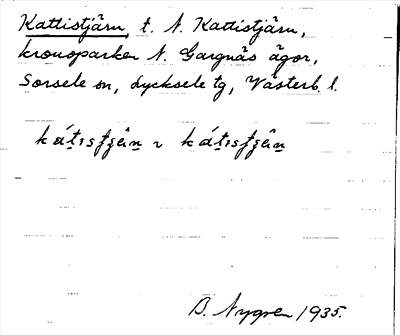 Kattistjärn, t. N. Kattistjärn,
kronoparken N. Gargnäs ägor,
Sorsele sn, Lycksele tg, Västerb. l.
B. Nygren 1935.